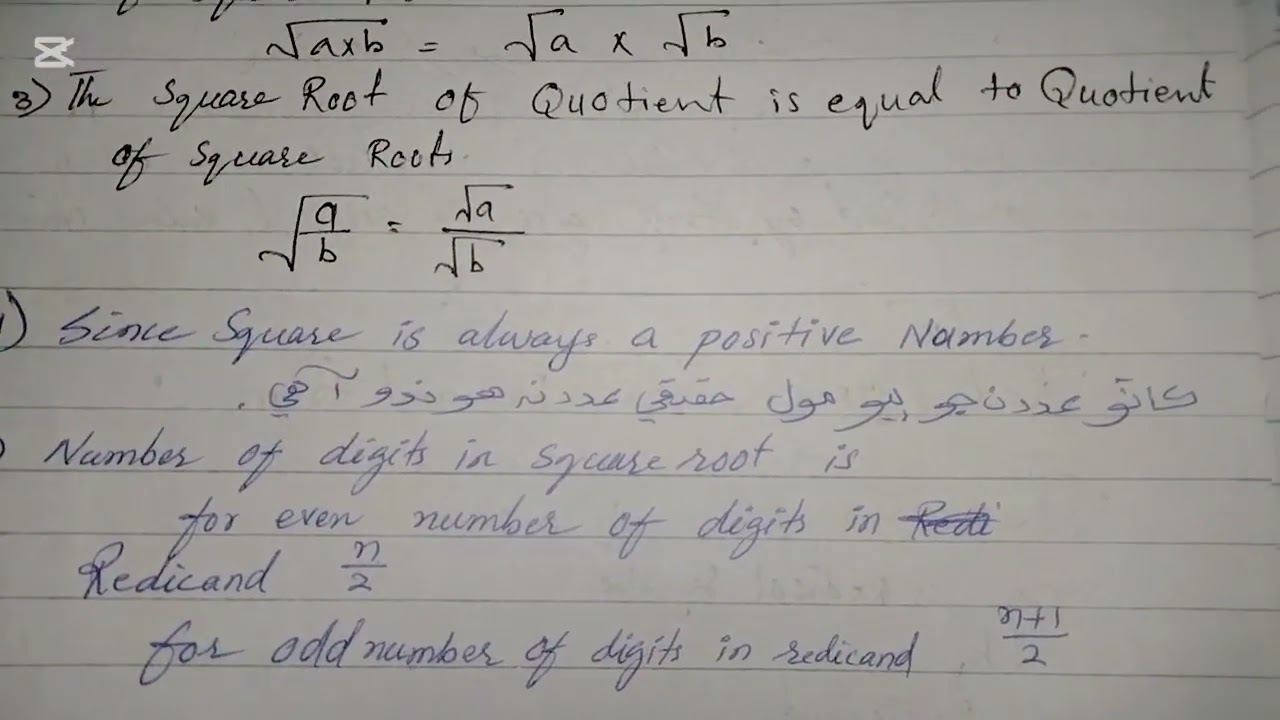 √a×b = √a × √b
3) The Square Root of Quotient is equal to Quotient
of Square Roots.
√a/b = √a/√b
) Since Square is always a positive Number.
ڪاٽو عددن جو ٻيو مول حقيقي عدد نه هوندو آهي.
Number of digits in square root is
for even number of digits in Redi
Redicand n/2
for odd number of digits in redicand n+1/2